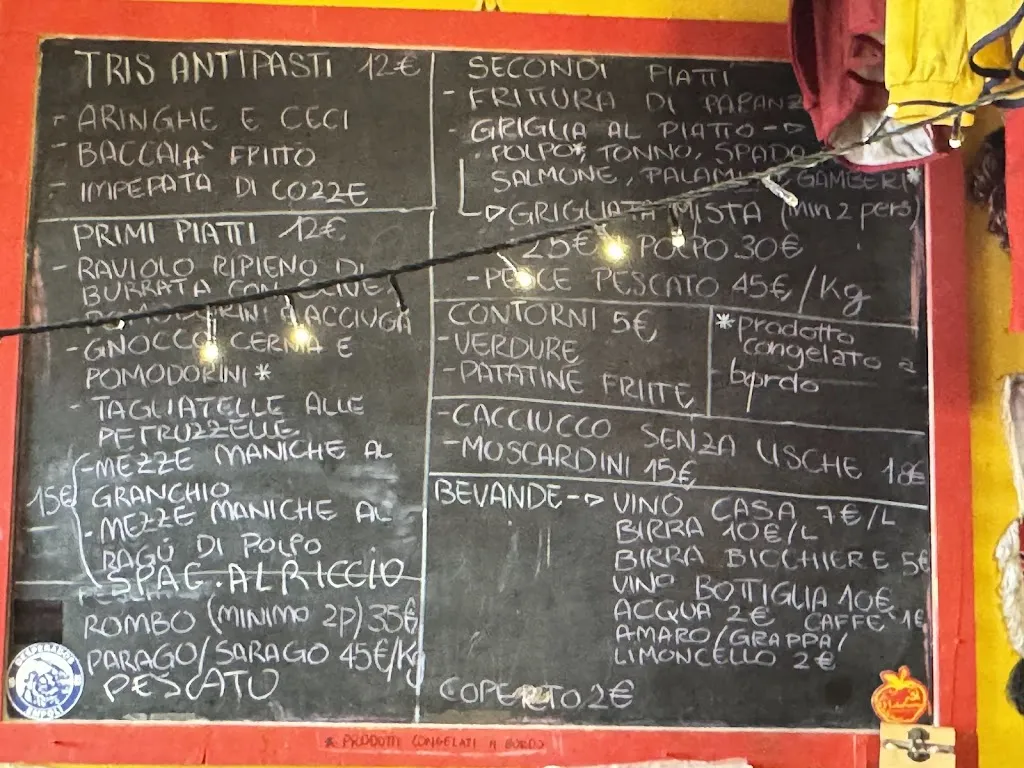 TRIS ANTIPASTI 12€
- ARINGHE E CECI
- BACCALA' FRITTO
- IMPEPATA DI COZZE
PRIMI PIATTI 12€
- RAVIOLO RIPIENO DI
BURRATA CON OLIVE,
POMODORINI A ACCIUGA
- GNOCCO CERNIA E
POMODORINI *
- TAGLIATELLE ALLE
PETRUZZELLE
15€
- MEZZE MANICHE AL
GRANCHIO
- MEZZE MANICHE AL
RAGÙ DI POLPO
SPAG. AL RICCIO
ROMBO (MINIMO 2P) 35€
PARAGO/SARAGO 45€/Kg
PESCATO
SECONDI PIATTI
- FRITTURA DI PARANZ
- GRIGLIA AL PIATTO ->
POLPO*, TONNO, SPADA
SALMONE, PALAMITA GAMBERI*
GRIGLIATA MISTA (min 2 pers)
25€ POLPO 30€
- PESCE PESCATO 45€/Kg
CONTORNI 5€
- VERDURE
- PATATINE FRITTE
* prodotto
congelato a
bordo
- CACCIUCCO SENZA LISCHE 18€
- MOSCARDINI 15€
BEVANDE -> VINO CASA 7€/L
BIRRA 10€/L
BIRRA BICCHIERE 5€
VINO BOTTIGLIA 10€
ACQUA 2€ CAFFE' 1€
AMARO/GRAPPA/
LIMONCELLO 2€
COPERTO 2€
DESPERADOS
EMPOLI
* PRODOTTI CONGELATI A BORDO